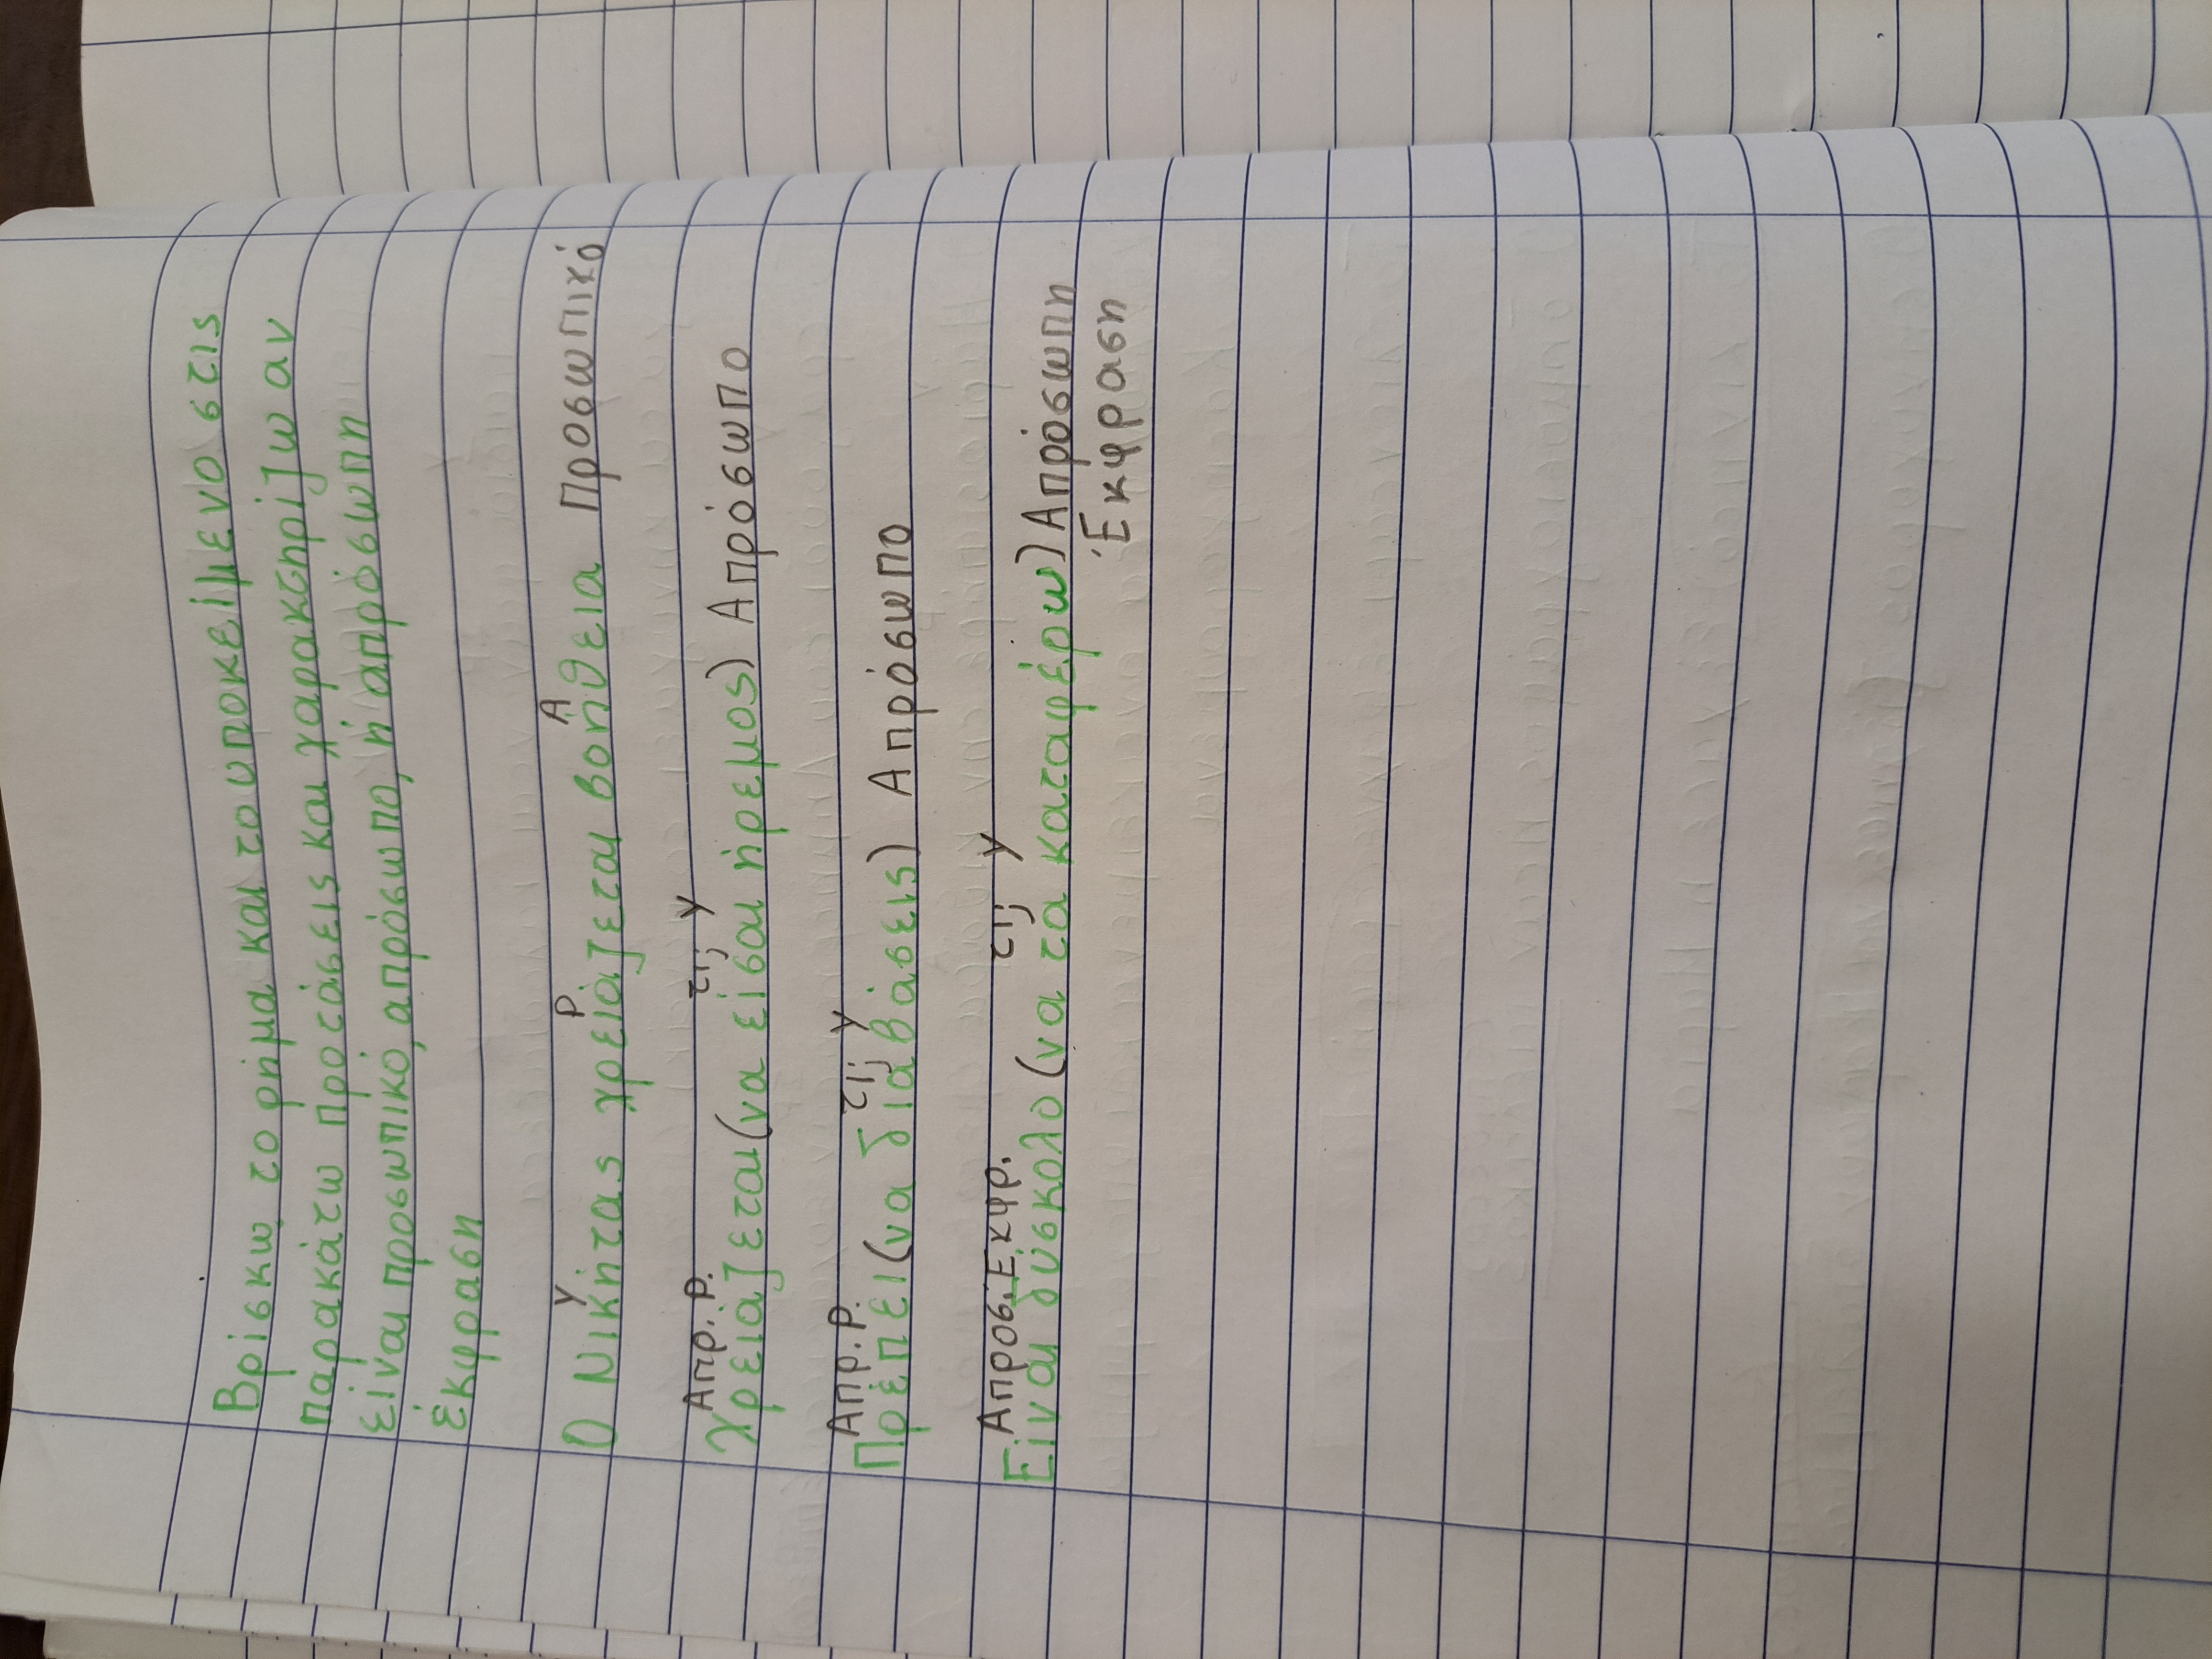 Βρίσκω το ρήμα και το υποκείμενο στις
παρακάτω προτάσεις και χαρακτηρίζω αν
είναι προσωπικό, απρόσωπο, ή απρόσωπη
έκφραση
Υ Ρ Α
Ο Νικήτας χρειάζεται βοήθεια Προσωπικό
Απρ. Ρ. τι; Υ
Χρειάζεται (να είσαι ήρεμος) Απρόσωπο
Απρ. Ρ. τι; Υ
Πρέπει (να διαβάσεις) Απρόσωπο
Απροσ. Εκφρ. τι; Υ
Είναι δύσκολο (να τα καταφέρω) Απρόσωπη
Έκφραση